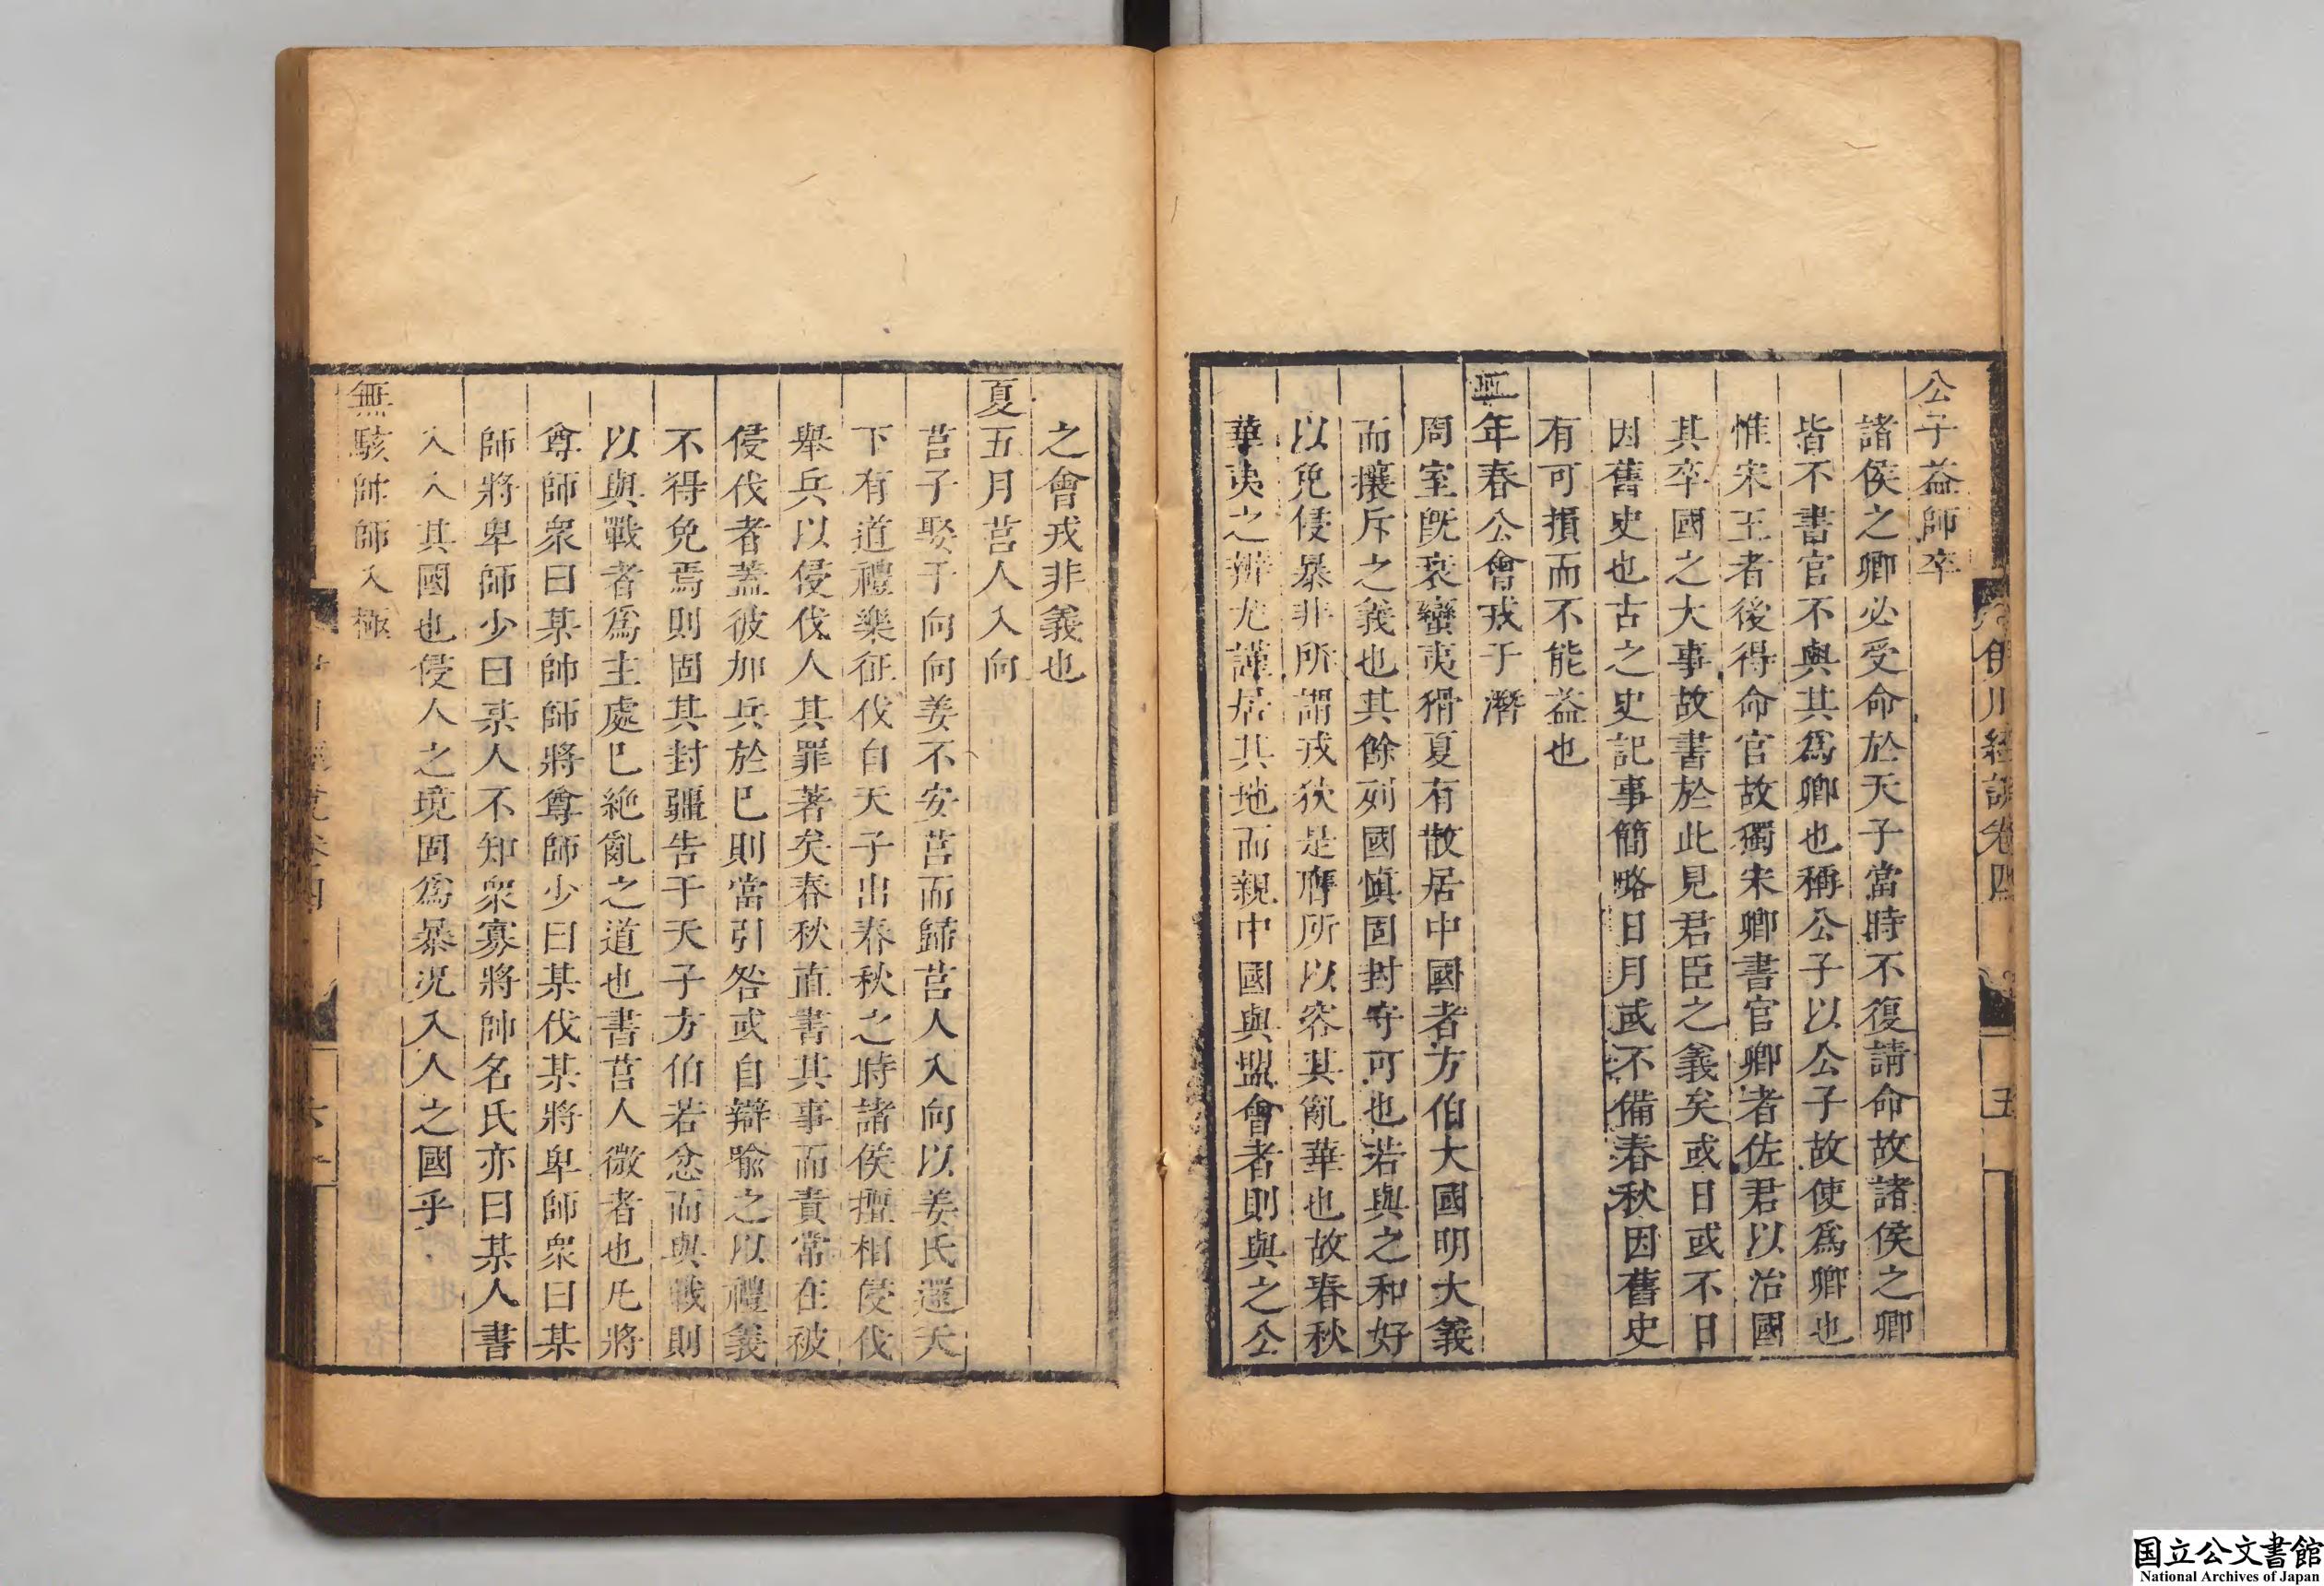 公子益師卒
諸侯之卿必受命於天子當時不復請命故諸侯之卿
皆不書官不與其爲卿也稱公子以公子故使爲卿也
惟宋王者後得命官故獨宋卿書官卿者佐君以治國
其卒國之大事故書於此見君臣之義矣或日或不日
因舊史也古之史記事簡略日月或不備春秋因舊史
有可損而不能益也
年春公會戎于潛
周室旣衰蠻夷猾夏有散居中國者方伯大國明大義
而攘斥之義也其餘列國慎固封守可也若與之和好
以免侵暴非所謂戎狄是膺所以容其亂華也故春秋
華夷之辨尤謹居其地而親中國與盟會者則與之公
伊川經說卷四
五
之會戎非義也
夏五月莒人入向
莒子娶于向向姜不安莒而歸莒人入向以姜氏還天
下有道禮樂征伐自天子出春秋之時諸侯擅相侵伐
舉兵以侵伐人其罪著矣春秋直書其事而責常在被
侵伐者蓋彼加兵於已則當引咎或自辯喩之以禮義
不得免焉則固其封疆告于天子方伯若忿而與戰則
以與戰者爲主處已絶亂之道也書莒人微者也凡將
尊師衆曰某帥師將尊師少曰某伐某將卑師衆曰某
師將卑師少曰某人不知衆寡將帥名氏亦曰某人書
入入其國也侵人之境固爲暴况入人之國乎
無駭帥師入極
六
国立公文書館
National Archives of Japan